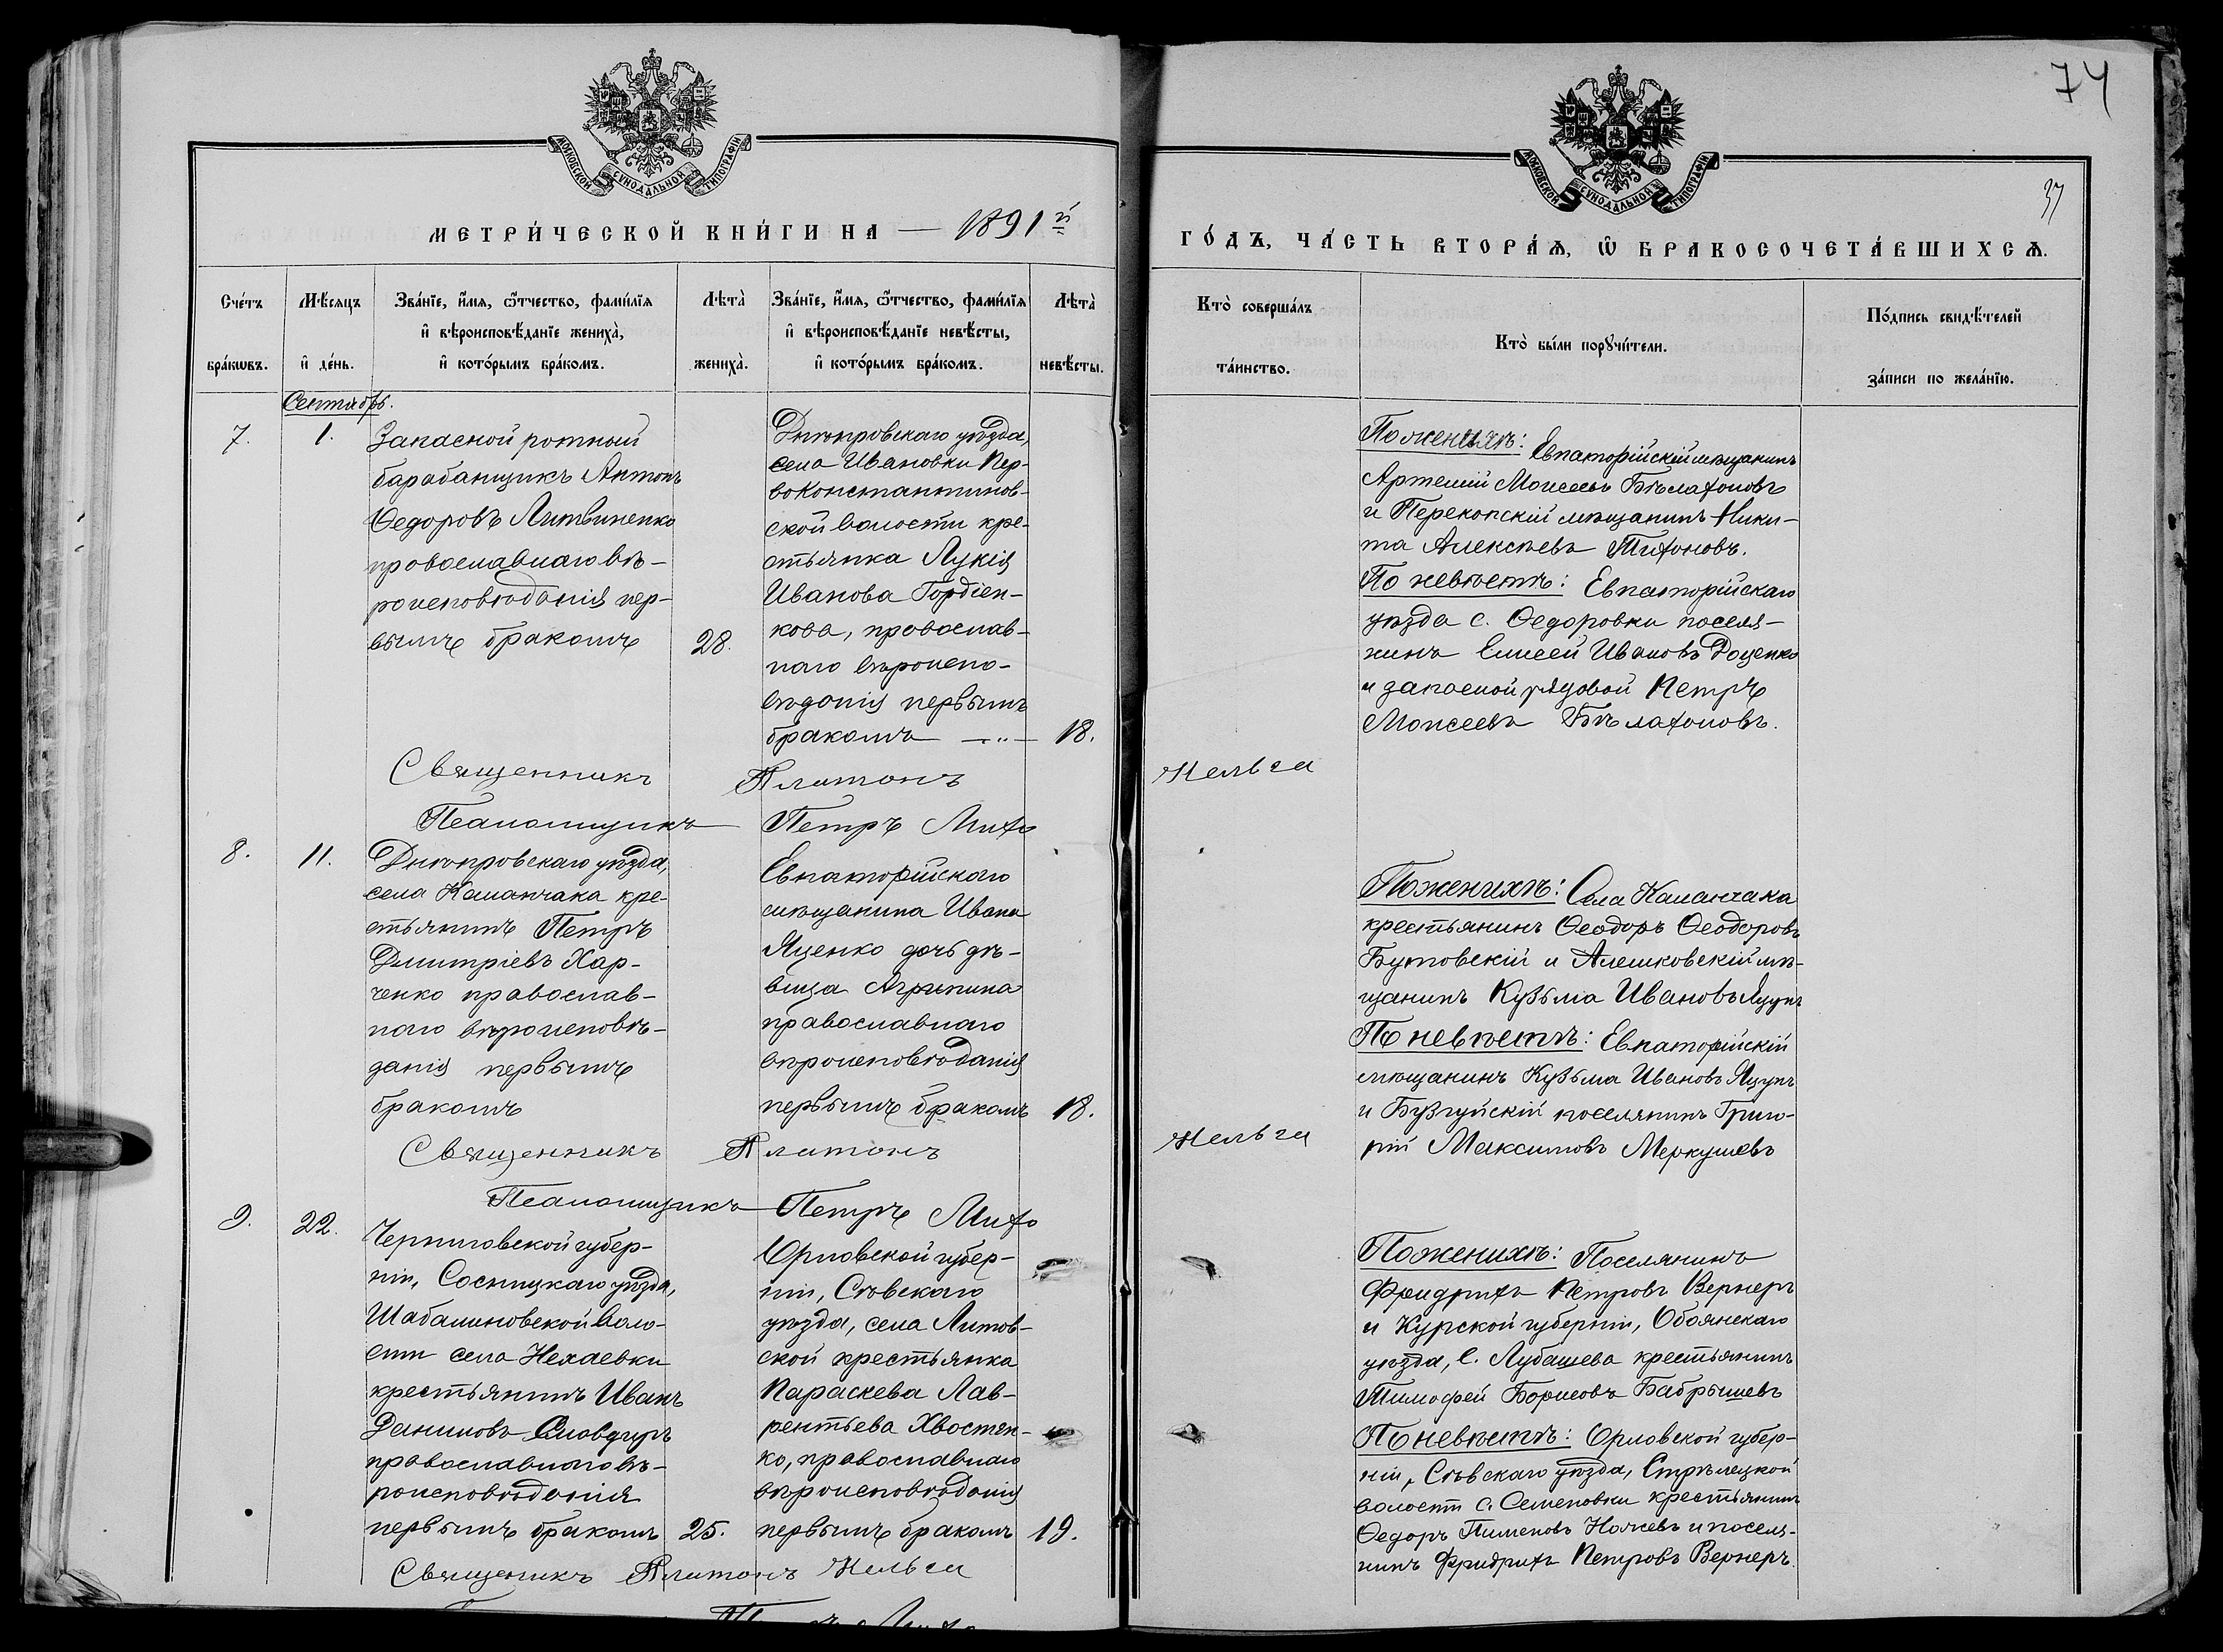 74
37
МОСКОВСКОЙ СѴНОДАЛЬНОЙ ТИПОГРАФІИ
МОСКОВСКОЙ СѴНОДАЛЬНОЙ ТИПОГРАФІИ
МЕТРИ́ЧЕСКОЙ КНИ́ГИ НА — 1891й
ГО́ДЪ, ЧА́СТЬ ВТОРА́Ѧ, Ѽ БРАКОСОЧЕТА́ВШИХСѦ.
Сче́тъ бра́кѡвъ.
Мѣ́сяцъ и҆ де́нь.
Зва́нїе, и҆́мѧ, ѻ҆́тчество, фами́лїѧ
и҆ вѣроисповѣ́данїе жениха̀,
и҆ кото́рымъ бра́комъ.
Лѣта̀ жениха̀.
Зва́нїе, и҆́мѧ, ѻ҆́тчество, фами́лїѧ
и҆ вѣроисповѣ́данїе невѣ́сты,
и҆ кото́рымъ бра́комъ.
Лѣта̀ невѣ́сты.
Кто̀ соверша́лъ
та́инство.
Кто̀ бы́ли порꙋчи́тели.
По́дпись свидѣ́телей
за́писи по жела́нїю.
Сентябрь.
7.
1.
Запасной ротный
барабанщикъ Антонъ
Ѳедоровъ Литвиненко
православнаго вѣ-
роисповѣданія пер-
вымъ бракомъ
28.
Днѣпровскаго уѣзда,
села Ивановки Пер-
воконстантинов-
ской волости кре-
стьянка Лукія
Иванова Гордіен-
кова, православ-
наго вѣроиспо-
вѣданія первымъ
бракомъ
18.
По женихѣ: Евпаторійскій мѣщанинъ
Артемій Моисеевъ Бѣлахоновъ
и Перекопскій мѣщанинъ Ники-
та Алексѣевъ Тихоновъ.
По невѣстѣ: Евпаторійскаго
уѣзда с. Ѳедоровки поселя-
нинъ Елисей Ивановъ Доценко
и запасной рядовой Петръ
Моисеевъ Бѣлахоновъ.
Священникъ Платонъ
Псаломщикъ Петръ Михо
8.
11.
Днѣпровскаго уѣзда,
села Каланчака кре-
стьянинъ Петръ
Дмитріевъ Хар-
ченко православ-
наго вѣроисповѣ-
данія первымъ
бракомъ
Евпаторійскаго
мѣщанина Ивана
Яценко дочь дѣ-
вица Агрипина
православнаго
вѣроисповѣданія
первымъ бракомъ
18.
По женихѣ: Села Каланчака
крестьянинъ Ѳеодоръ Ѳеодоровъ
Бутовскій и Алешковскій мѣ-
щанинъ Кузьма Ивановъ Яцунъ
По невѣстѣ: Евпаторійскій
мѣщанинъ Кузьма Ивановъ Яцунъ
и Бузгуйскій поселянинъ Григо-
рій Максимовъ Меркушевъ
Священникъ Платонъ
Псаломщикъ Петръ Михо
9.
22.
Черниговской губер-
ніи, Сосницкаго уѣзда,
Шабалиновской воло-
сти села Нехаевки
крестьянинъ Иванъ
Даниловъ
православнаго вѣ-
роисповѣданія
первымъ бракомъ
25.
Орловской губер-
ніи, Сѣвскаго
уѣзда, села Литов-
ской крестьянка
Параскева Лав-
рентьева Хвостен-
ко, православнаго
вѣроисповѣданія
первымъ бракомъ
19.
По женихѣ: Поселянинъ
Фридрихъ Петровъ Вернеръ
и Курской губерніи, Обоянскаго
уѣзда, с. Лубашева крестьянинъ
Тимофей Борисовъ Бабрышевъ
По невѣстѣ: Орловской губер-
ніи, Сѣвскаго уѣзда, Стрѣлецкой
волости с. Семеновки крестьянинъ
Ѳедоръ Пименовъ Ножевъ и поселя-
нинъ Фридрихъ Петровъ Вернеръ.
Священникъ Платонъ